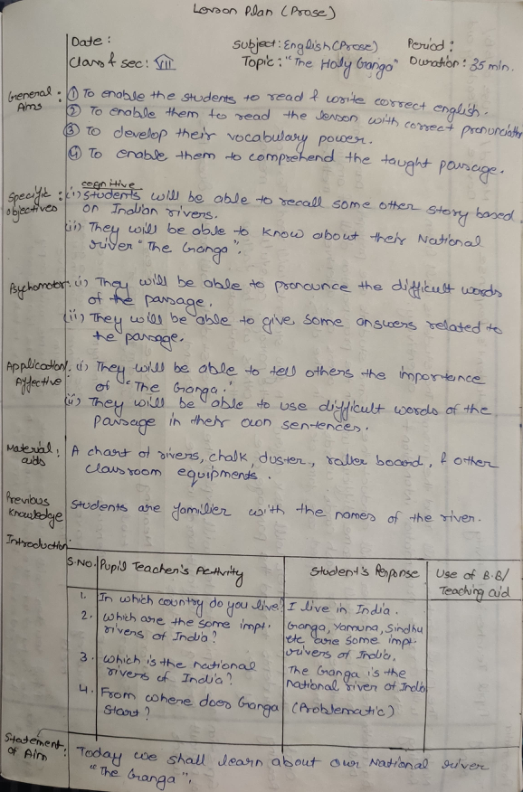 Lesson Plan (Prose)
Date :
Subject: English (Prose)
Period :
Class & sec: VII
Topic: "The Holy Ganga"
Duration: 35 min.
General Aims :
① To enable the students to read & write correct english.
② To enable them to read the lesson with correct pronunciation
③ To develop their vocabulary power.
④ To enable them to comprehend the taught passage.
Specific objectives :
cognitive
(i) Students will be able to recall some other story based
on Indian rivers.
(ii) They will be able to know about their National
river "The Ganga".
Psychomotor:
(i) They will be able to pronounce the difficult words
of the passage.
(ii) They will be able to give some answers related to
the passage.
Application/ Affective :
(i) They will be able to tell others the importance
of "The Ganga."
(ii) They will be able to use difficult words of the
passage in their own sentences.
Material aids :
A chart of rivers, chalk, duster, roller board, & other
classroom equipments.
Previous Knowledge
Students are familier with the names of the river.
Introduction
S.No. Pupil Teacher's Activity
Student's Reponse
Use of B.B/
Teaching aid
1. In which country do you live?
I live in India.
2. which are the some impt.
rivers of India?
Ganga, Yamuna, Sindhu
etc are some impt.
rivers of India.
3. which is the national
rivers of India?
The Ganga is the
national river of India
4. From where does Ganga
Start?
(Problematic)
Statement of Aim :
Today we shall learn about our National river
"The Ganga".